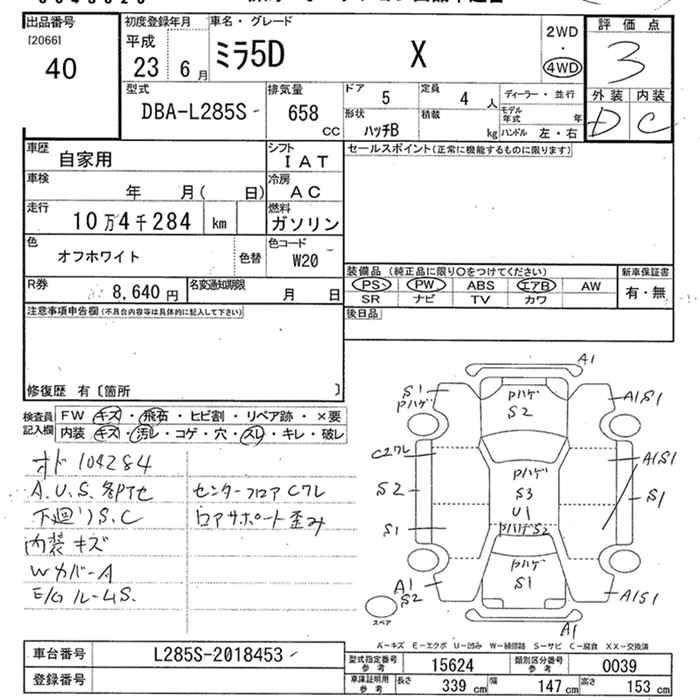 出品番号
[2066]
40
初度登録年月
平成
23 6月
車名・グレード
ミラ5D X
2WD
・
4WD
評価点
3
外装 内装
D C
型式
DBA-L285S
排気量
658
CC
ドア 5
定員 4 人
形状 ハッチB
積載 kg
ディーラー・並行
モデル年式 年
ハンドル 左・右
車歴 自家用
シフト IAT
車検 年 月( 日)
冷房 AC
走行 10万4千284 km
燃料 ガソリン
色 オフホワイト 色替
色コード W20
R券 8,640円
名変通知期限 月 日
セールスポイント(正常に機能するものに限ります)
装備品 (純正品に限り○をつけてください)
PS PW ABS エアB AW
SR ナビ TV カワ
新車保証書
有・無
後日品
注意事項申告欄(不具合内容等は具体的に記入して下さい)
修復歴 有〔箇所 〕
検査員記入欄
FW キズ・飛石・ヒビ割・リペア跡・×要
内装 キズ・汚レ・コゲ・穴・スレ・キレ・破レ
オド 104284
A.U.S.各所他
下廻りS.C
内装キズ
WカバーA
E/GルームS.
センターフロアCワレ
ロアサポート歪み
A1
S1
Pハゲ
Pハゲ
S2
A1S1
C2ワレ
S2
S1
Pハゲ
S3
U1
PハゲS2
A1S1
S1
A1
S2
Pハゲ
S1
A1S1
A1
スペア
A-キズ E-エクボ U-凹み W-補修跡 S-サビ C-腐食 XX-交換済
車台番号 L285S-2018453
登録番号
型式指定番号参考 15624
類別区分番号参考 0039
車庫証明用参考 長さ 339cm 幅 147cm 高さ 153cm